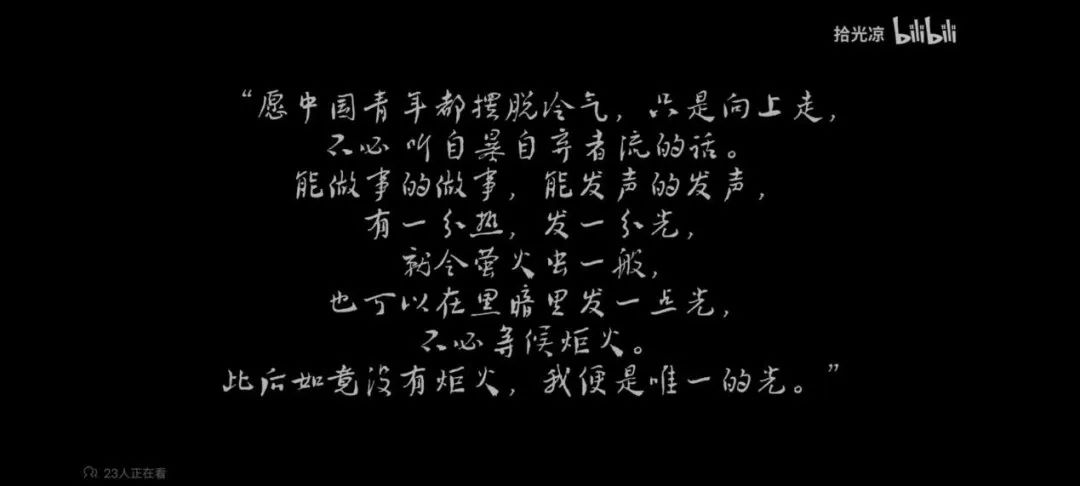 拾光凉 bilibili
“愿中国青年都摆脱冷气，只是向上走，
不必听自暴自弃者流的话。
能做事的做事，能发声的发声，
有一分热，发一分光，
就令萤火虫一般，
也可以在黑暗里发一点光，
不必等候炬火。
此后如竟没有炬火，我便是唯一的光。”
23人正在看